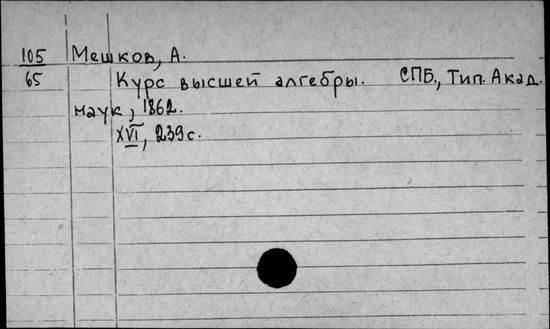 105 Мешков, А.
65 Курс высшей алгебры. СПБ., Тип. Акад.
наук, 1862.
XVI, 239 с.